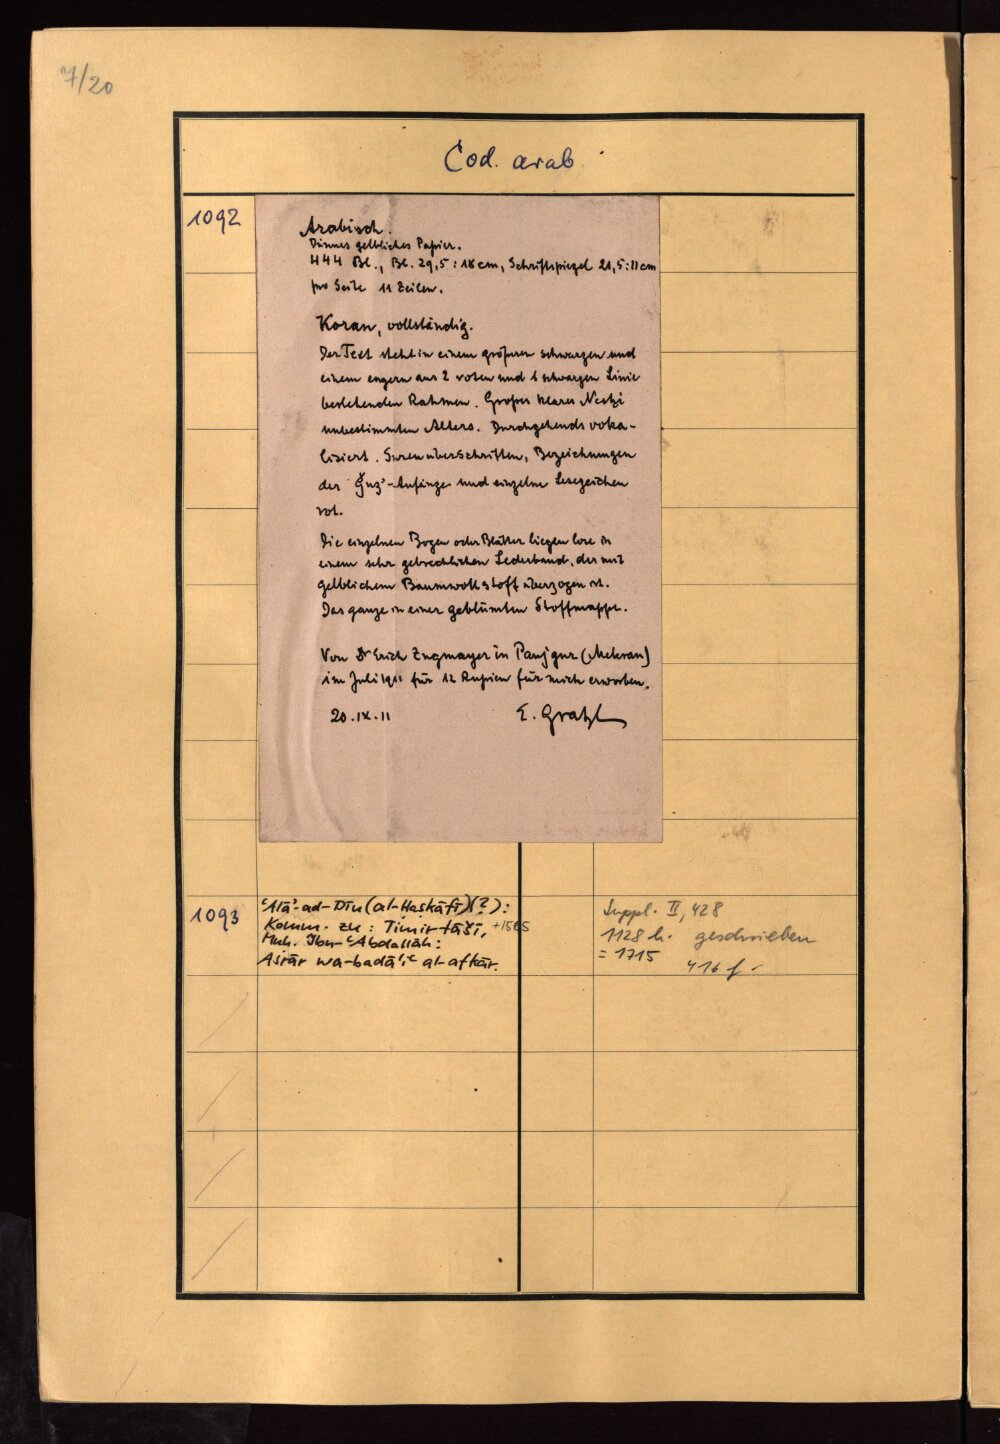 7/20
Cod. arab.
1092
Arabisch.
Dünnes gelbliches Papier.
444 Bl., Bl. 29,5 : 18 cm, Schriftspiegel 21,5 : 11 cm
pro Seite 11 Zeilen.
Koran, vollständig.
Der Text steht in einem größeren schwarzen und
einem engern aus 2 roten und 1 schwarzen Linie
bestehenden Rahmen. Großes klares Neskhi
unbestimmten Alters. Durchgehends voka-
lisiert. Surenüberschriften, Bezeichnungen
der Ǧuz'-Anfänge und einzelne Lesezeichen
rot.
Die einzelnen Bogen oder Blätter liegen lose in
einem sehr gebrechlichen Lederband, der mit
gelblichem Baumwollstoff überzogen ist.
Das ganze in einer geblümten Stoffmappe.
Von Dr Erich Zugmayer in Panjgur (Mekran)
im Juli 1911 für 12 Rupien für mich erworben.
20.IX.11 E. Gratzl
1093
ʿAlāʾ-ad-Dīn (al-Ḥaṣkafī)(?):
Komm. zu: Timirtāšī, +1565
Muḥ. Ibn-ʿAbdallāh:
Asrār wa-badāʾiʿ al-afkār.
Suppl. II, 428
1128 h. geschrieben
= 1715
416 f.